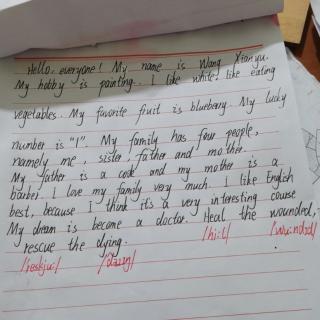 Hello, everyone! My name is Wang Xianyu.
My hobby is painting. I like white. I like eating
vegetables. My favorite fruit is blueberry. My lucky
number is "1". My family has four people,
namely me, sister, father and mother.
My father is a cook and my mother is a
barber. I love my family very much. I like English
best, because I think it's a very interesting course
My dream is become a doctor. Heal the wounded,
rescue the dying. /hi:l/ /wu:ndɪd/
/reskju:/ /daɪɪŋ/